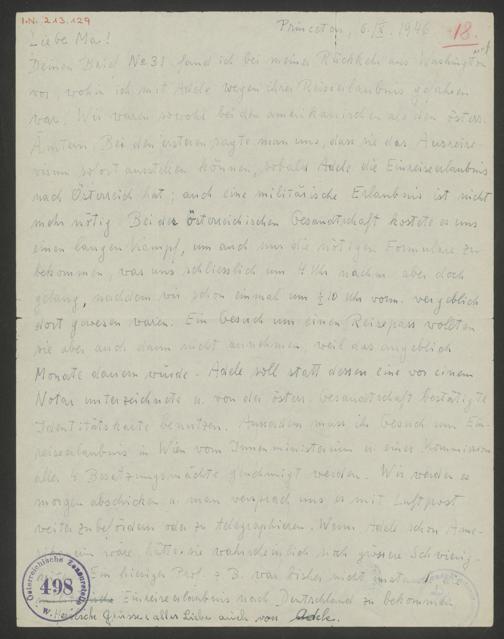 I.N. 213.129
Princeton, 6./IX. 1946
18.
Liebe Ma!
Deinen Brief No 31 fand ich bei meiner Rückkehr aus Washington
vor, wohin ich mit Adele wegen ihrer Reiseerlaubnis gefahren
war. Wir waren sowohl bei den amerikanischen als den österr.
Ämtern. Bei den ersteren sagte man uns, dass sie das Ausreise-
visum sofort ausstellen können, sobald Adele die Einreiseerlaubnis
nach Österreich hat; auch eine militärische Erlaubnis ist nicht
mehr nötig. Bei der Österreichischen Gesandtschaft kostete es uns
einen langen Kampf, um auch nur die nötigen Formulare zu
bekommen, was uns schliesslich um 4 Uhr nachm. aber doch
gelang, nachdem wir schon einmal um ½10 Uhr vorm. vergeblich
dort gewesen waren. Ein Gesuch um einen Reisepass wollten
sie aber auch dann nicht annehmen weil das angeblich
Monate dauern würde. Adele soll statt dessen eine vor einem
Notar unterzeichnete u. von der österr. Gesandtschaft bestätigte
Identitätskarte benutzen. Ausserdem muss ihr Gesuch um Ein-
reiseerlaubnis in Wien vom Innenministerium u. einer Kommission
aller 4 Besatzungsmächte genehmigt werden. Wir werden es
morgen abschicken u. man versprach uns es mit Luftpost
weiterzubefördern oder zu telegraphieren. Wenn Adele schon Ame-
wäre, hätte sie wahrscheinlich noch grössere Schwierig-
Ein hiesiger Prof. z. B. war bisher nicht imstande
Einreiseerlaubnis nach Deutschland zu bekommen
Herzliche Grüsse u. alles Liebe auch von Adele.
Österreichische Zensurstelle
498
W.